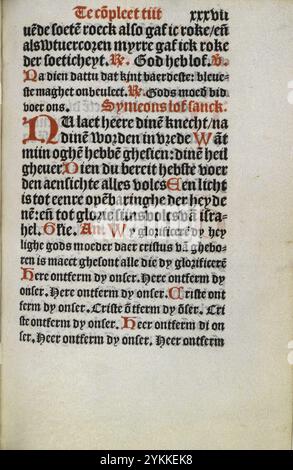 Te cōpleet tiit xxxvii
uēde soetē roeck also gaf ic roke/eñ
als wtuercoren myrre gaf ick roke
der soeticheyt. R. God heb lof. V.
Na dien dattu dat kint baerdeste: bleue-
ste maghet onbeulect. R. Gods moed bid
voer ons. Symeons lof sanck.
NU laet heere dinē knecht/na
dinē worden in vrede Wāt
mijn oghē hebbē ghesien: dinē heil
gheuer Dien du bereit hebste voer
den aensichte alles volcs Een licht
is tot eenre opēbaringhe der heyde
nē: eñ tot glorie sijns volcs vā isra-
hel. Glie. An. Wy glorificerē dy hey
lighe gods moeder daer cristus vā ghebo-
ren is maect ghesont alle die dy glorificerē
Here ontferm dy onser. Here ontferm dy
onser. Here ontferm dy onser. Criste ont
ferm dy onser. Criste ōtferm dy ōser. Cri
ste ontferm dy onser. Heer ontferm di on
ser. Heer ontferm dy onser. Heer ontferm
alamy
Image ID: 2YKKEK8
www.alamy.com